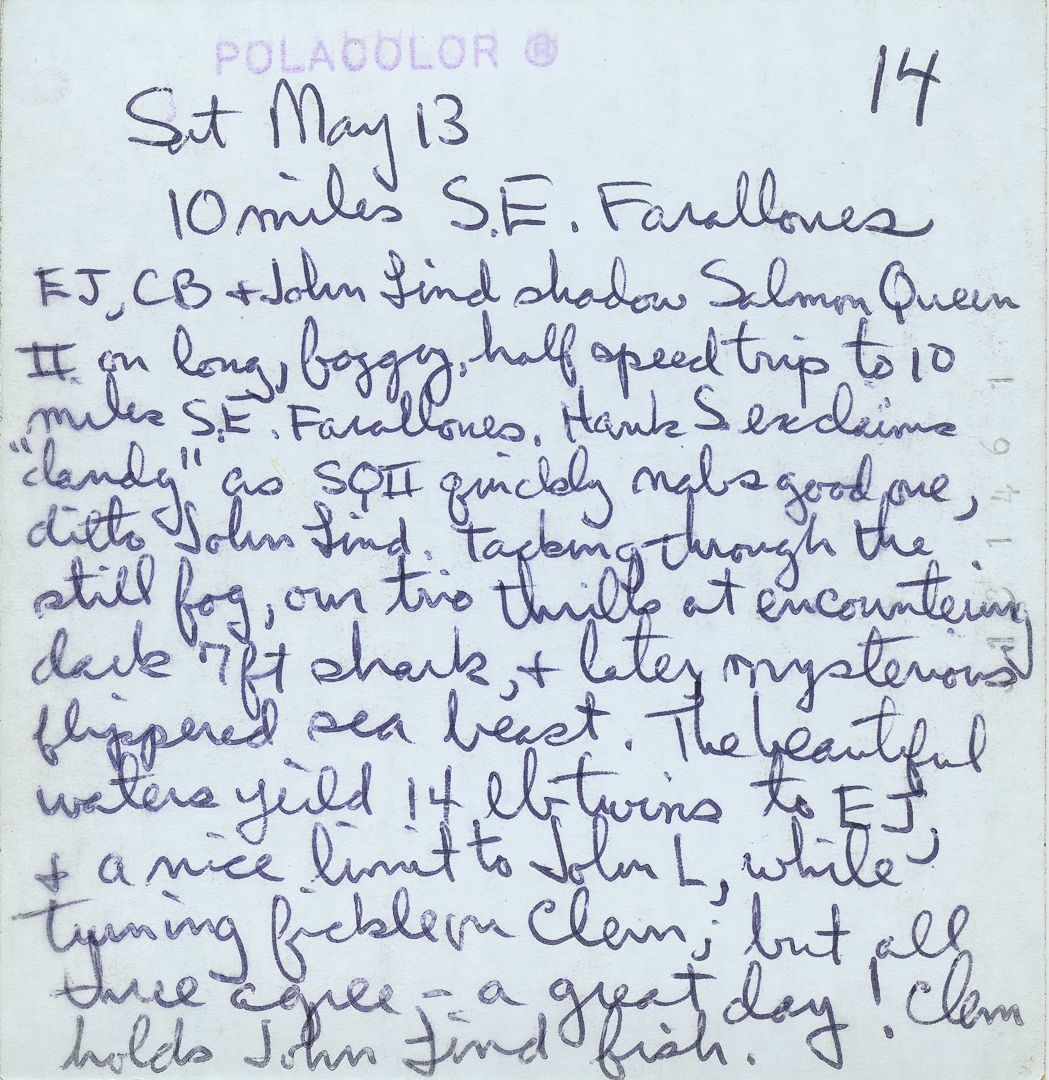 POLACOLOR ®
14
Sat May 13
10 miles S.E. Farallones
EJ, CB + John Lind shadow Salmon Queen
II on long, foggy, half speed trip to 10
miles S.E. Farallones. Hank S exclaims
"dandy" as SQII quickly nabs good one,
ditto John Lind. Tacking through the
still fog, our trio thrills at encountering
dark 7ft shark, + later mysterious
flippered sea beast. The beautiful
waters yeild 14 lb twins to EJ,
+ a nice limit to John L, while
turning fickle on Clem; but all
three agree - a great day! Clem
holds John Lind fish.